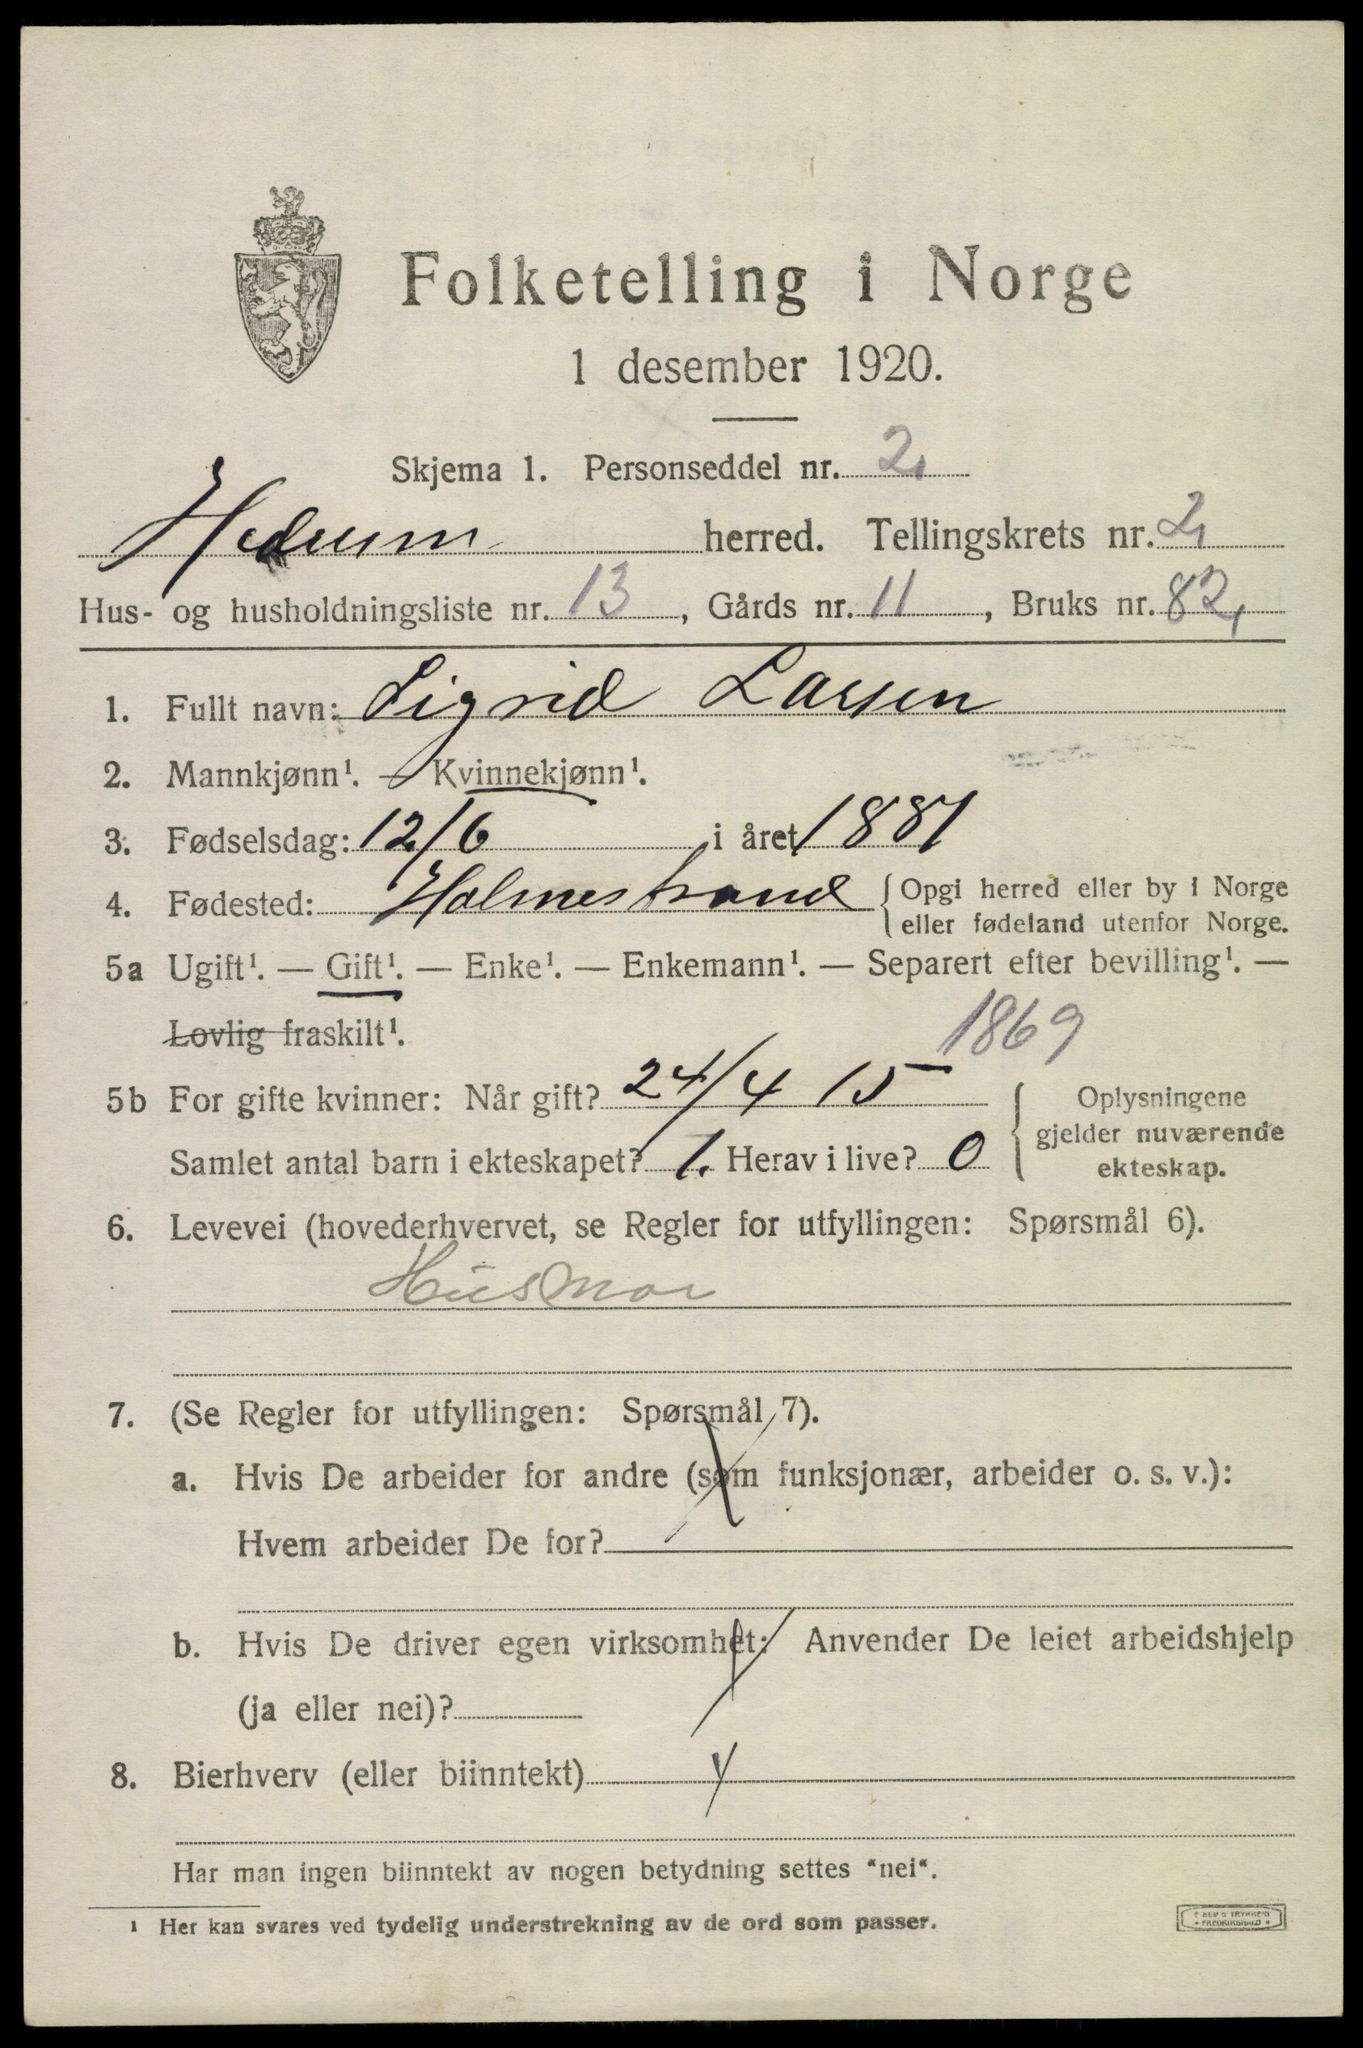 Folketelling i Norge
1 desember 1920.
Skjema 1. Personseddel nr. 2,
Hedrum herred. Tellingskrets nr. 2,
Hus- og husholdningsliste nr. 13, Gårds nr. 11, Bruks nr. 82,
1. Fullt navn: Sigrid Larsen
2. Mannkjønn¹. — Kvinnekjønn¹.
3. Fødselsdag: 12/6 i året 1881
4. Fødested: Holmestrand { Opgi herred eller by i Norge
eller fødeland utenfor Norge.
5a Ugift¹. — Gift¹. — Enke¹. — Enkemann¹. — Separert efter bevilling¹. —
Lovlig fraskilt¹.
1869
5b For gifte kvinner: Når gift? 24/4 15 { Oplysningene
gjelder nuværende
Samlet antal barn i ekteskapet? 1. Herav i live? 0
ekteskap.
6. Levevei (hovederhvervet, se Regler for utfyllingen: Spørsmål 6).
Husmor
7. (Se Regler for utfyllingen: Spørsmål 7).
a. Hvis De arbeider for andre (som funksjonær, arbeider o. s. v.):
Hvem arbeider De for?
b. Hvis De driver egen virksomhet: Anvender De leiet arbeidshjelp
(ja eller nei)?
8. Bierhverv (eller biinntekt)
Har man ingen biinntekt av nogen betydning settes "nei".
¹ Her kan svares ved tydelig understrekning av de ord som passer.